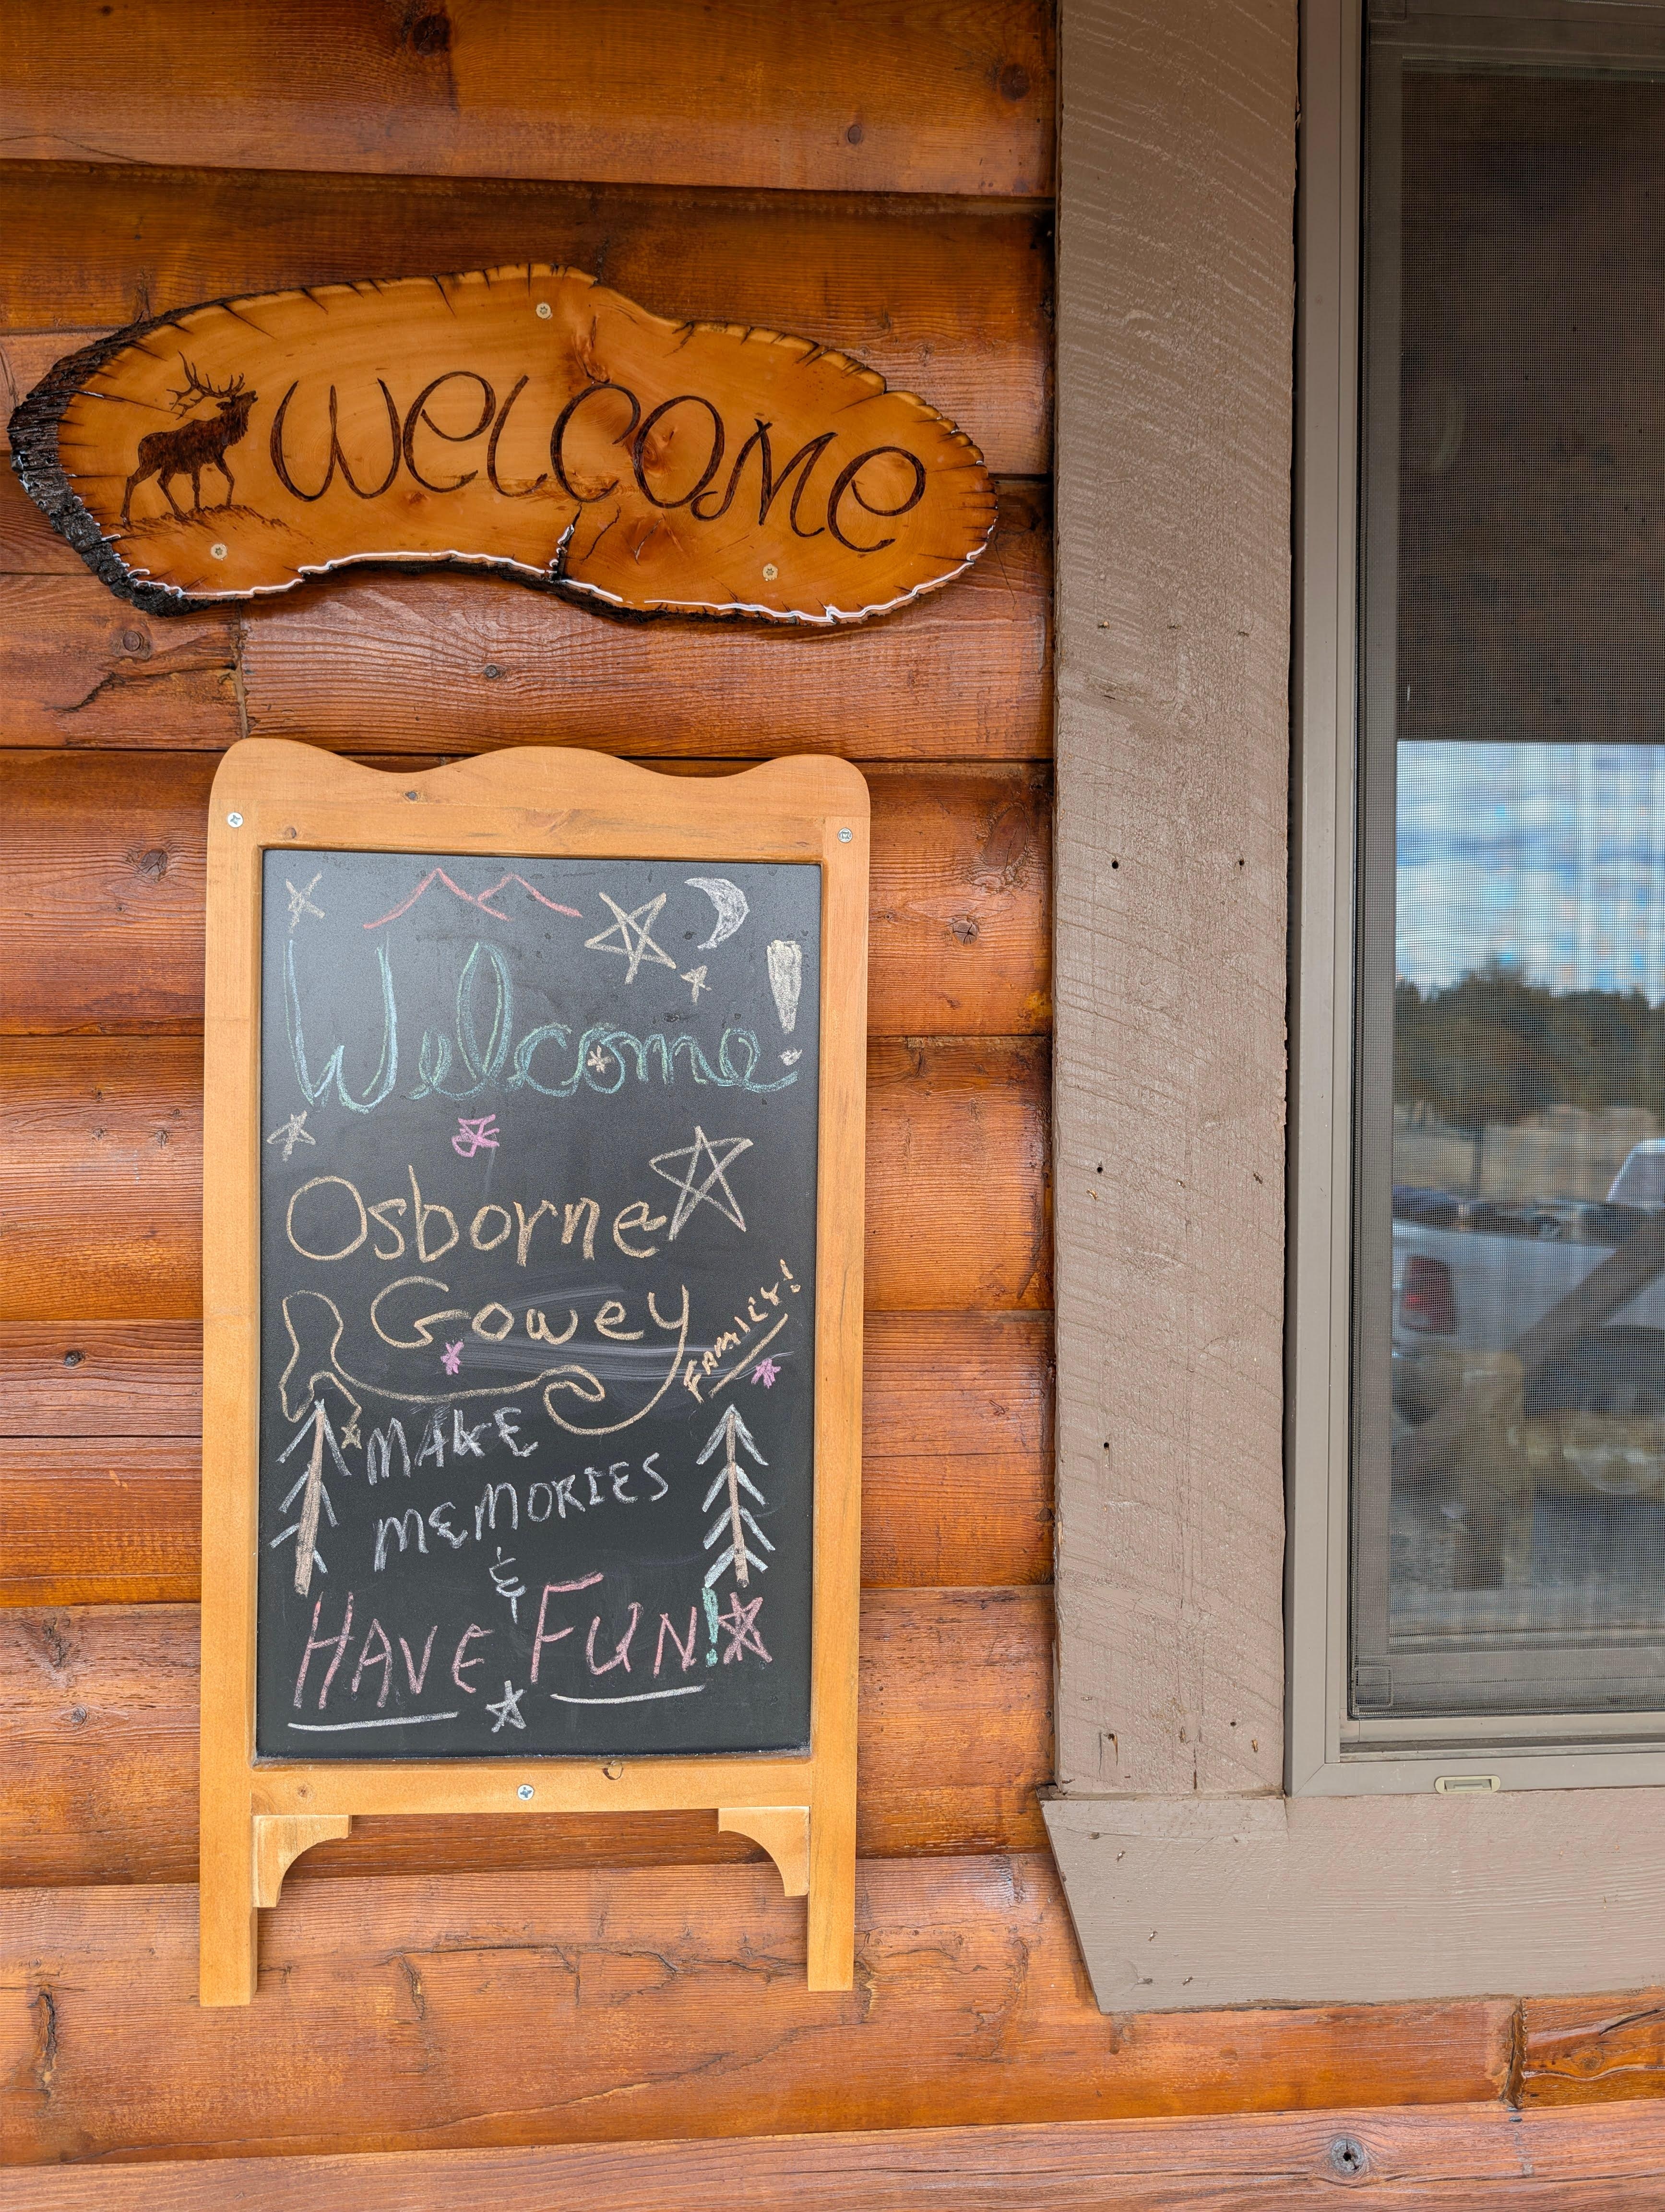 WELCOME
Welcome!
Osborne
Gowey
FAMILY!
MAKE
MEMORIES
&
HAVE FUN!